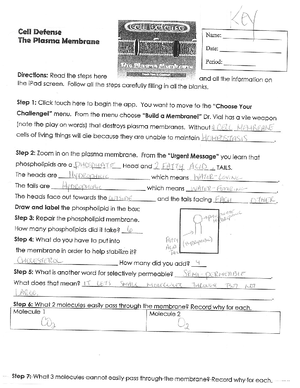 KEY
Cell Defense
The Plasma Membrane
Cell Defense
The Plasma Membrane
Name:
Date:
Period:
Directions: Read the steps here and all the information on
the iPad screen. Follow all the steps carefully filling in all the blanks.
Step 1: Click touch here to begin the app. You want to move to the "Choose Your
Challenge!" menu. From the menu choose "Build a Membrane!" Dr. Vial has a vile weapon
(note the play on words) that destroys plasma membranes. Without a CELL MEMBRANE
cells of living things will die because they are unable to maintain HOMEOSTASIS
Step 2: Zoom in on the plasma membrane. From the "Urgent Message" you learn that
phospholipids are a PHOSPHATE Head and 2 FATTY ACID TAILS.
The heads are HYDROPHILIC which means WATER-LOVING
The tails are HYDROPHOBIC which means WATER-FEARING
The heads face out towards the OUTSIDE and the tails facing EACH OTHER
Draw and label the phospholipid in the box:
Step 3: Repair the phospholipid membrane.
How many phospholipids did it take? 6
Step 4: What do you have to put into
the membrane in order to help stabilize it?
CHOLESTEROL How many did you add?
Step 5: What is another word for selectively permeable? SEMI-PERMEABLE
What does that mean? IT LETS SMALL MOLECULES THROUGH BUT NOT
LARGE
Step 6: What 2 molecules easily pass through the membrane? Record why for each.
Molecule 1 Molecule 2
CO2 O2
Step 7: What 3 molecules cannot easily pass through the membrane? Record why for each.